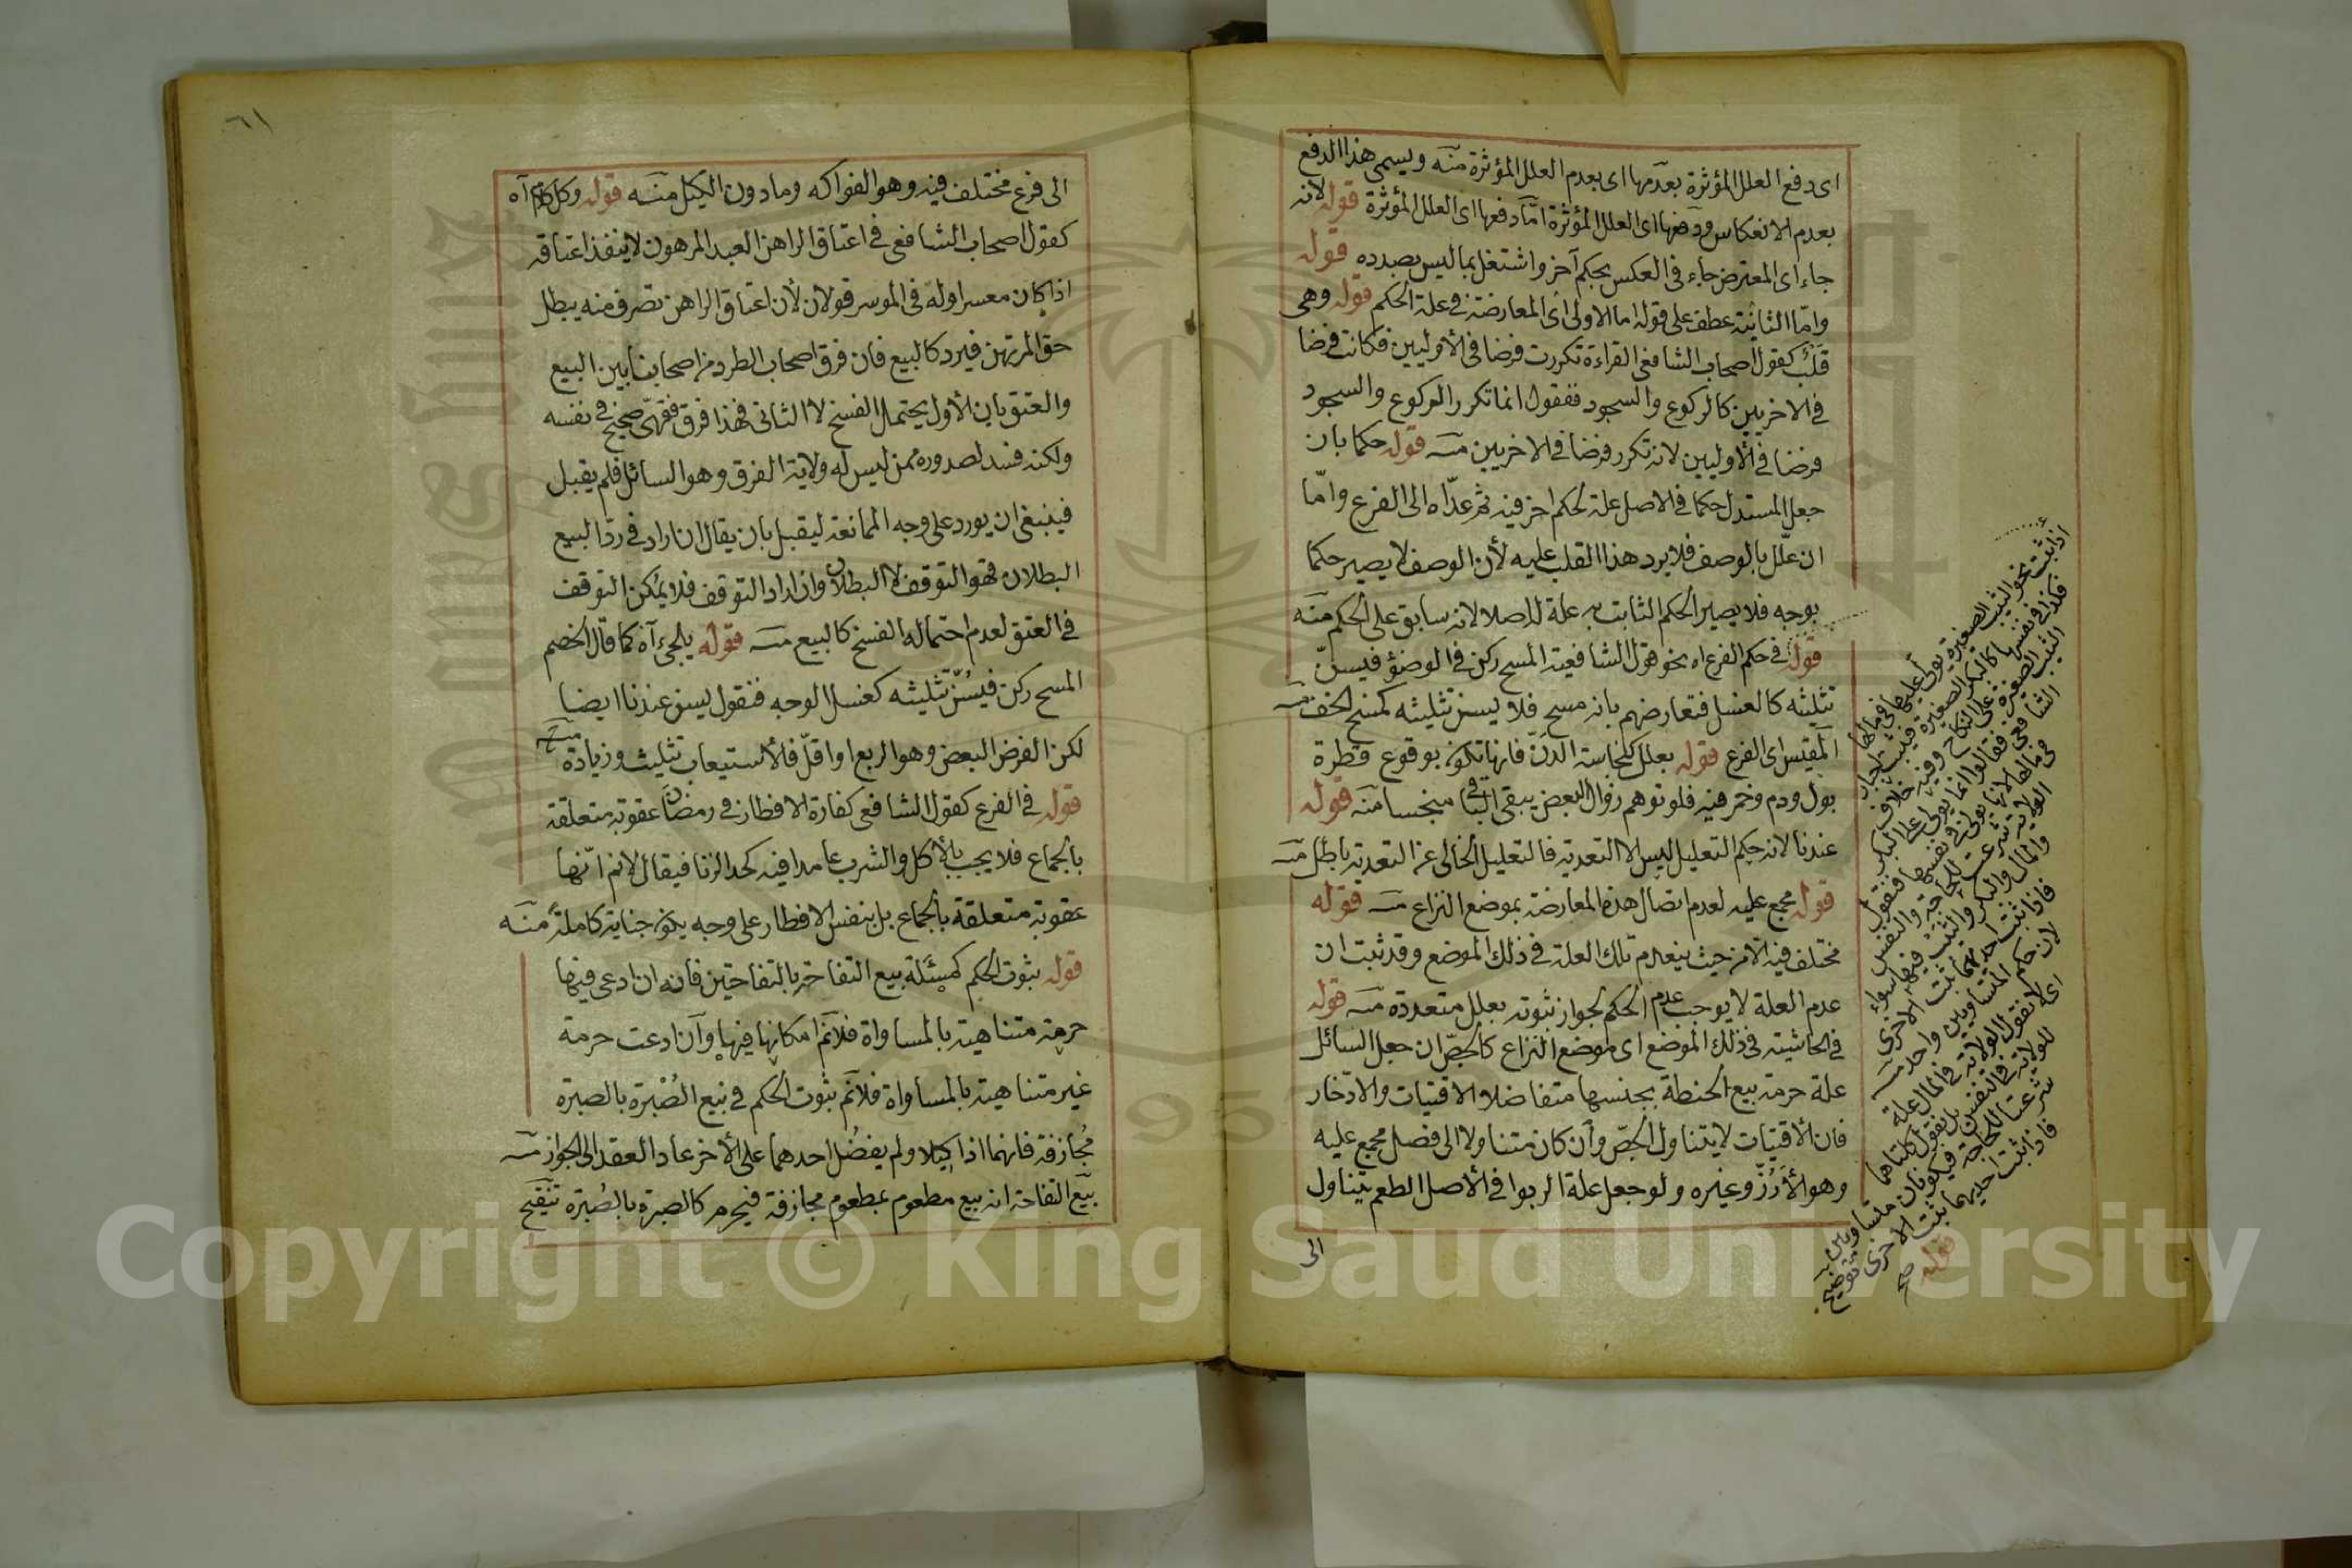 اى دفع العلل المؤثرة بعدمها اى بعدم العلل المؤثرة منه ويسمى هذا الدفع
بعدم الانعكاس ودفعها اى العلل المؤثرة امّا دفعها اى العلل المؤثرة قوله لانه
جاء اى المعترض جاء فى العكس بحكم آخر واشتغل بما ليس بصدده قوله
وامّا الثانية عطف على قوله اما الاولى اى المعارضة فى علة الحكم قوله وهى
قلب كقول اصحاب الشافعى القراءة تكررت فرضا فى الأوليين فكانت فرضا
فى الاخريين كالركوع والسجود فنقول انما تكرر الركوع والسجود
فرضا فى الأوليين لانه تكرر فرضا فى الاخريين منه قوله حكما بان
جعل المستدل حكما فى الاصل علة لحكم اخر فيه ثم عدّاه الى الفرع وامّا
ان علّل بالوصف فلا يرد هذا القلب عليه لأن الوصف لا يصير حكما
بوجه فلا يصير الحكم الثابت به علة للاصلا لانه سابق على الحكم منه
قوله فى حكم الفرع اه نحو قول الشافعية المسح ركن فى الوضوء فيسنّ
تثليثه كالغسل فتعارضهم بانه مسح فلا يسن تثليثه كمسح الخف منه
المقيس اى الفرع قوله بعلل كنجاسة الدنّ فانها تكون بوقوع قطرة
بول ودم وخمر فيه فلو توهم زوال البعض يبقى الباقى منجسا منه قوله
عندنا لانه حكم التعليل ليس الا التعدية فالتعليل الخالى عن التعدية باطل منه
قوله مجمع عليه لعدم اتصال هذه المعارضة بموضع النزاع منه قوله
مختلف فيه الا من حيث ينعدم تلك العلة فى ذلك الموضع وقد ثبت ان
عدم العلة لا يوجب عدم الحكم لجواز ثبوته بعلل متعددة منه قوله
فى الحاشية فى ذلك الموضع اى موضع النزاع كالجصّ ان جعل السائل
علة حرمة بيع الحنطة بجنسها متفاضلا الاقتيات والادّخار
فان الاقتيات لا يتناول الجصّ وأن كان متناولا الى فصل مجمع عليه
وهو الأرُزّ وغيره ولو جعل علة الربوا فى الأصل الطعم يتناول
الى
اذا ثبت نحو الثيب الصغيرة يولى عليها فى مالها
فكذا فى نفسها كالبكر الصغيرة فيثبت اجبار
الثيب الصغيرة على النكاح وفيه خلاف
الشافعى فقالوا انما يولى على البكر
فى مالها لانه يولى فى نفسها فنقول
الولاية شرعت للحاجة والنفس
والمال والبكر والثيب فيها سواء
فاذا ثبت احديهما ثبت الاخرى
لان حكم المتساويين واحد منه
اى لا نقول الولاية فى المال علة
للولاية فى النفس بل نقول كلتاهما
شرعتا للحاجة فيكونان متساويين
فاذا ثبت احديهما ثبت الاخرى توضيح
قوله صح
٦١
الى فرع مختلف فيه وهو الفواكه وما دون الكيل منه قوله وكل كلام آه
كقول اصحاب الشافعى فى اعتاق الراهن العبد المرهون لا ينفذ اعتاقه
اذا كان معسرا وله فى الموسر قولان لأن اعتاق الراهن تصرف منه يبطل
حق المرتهن فيرد كالبيع فان فرق اصحاب الطرد من اصحابنا بين البيع
والعتق بان الأول يحتمل الفسخ لا الثانى فهذا فرق فقهىّ صحيح فى نفسه
ولكنه فسد لصدوره ممن ليس له ولاية الفرق وهو السائل فلم يقبل
فينبغى ان يورد على وجه الممانعة ليقبل بان يقال ان اراد فى ردّ البيع
البطلان فهو التوقف لا البطلان وان اراد التوقف فلا يمكن التوقف
فى العتق لعدم احتماله الفسخ كالبيع منه قوله يلجئ آه كما قال الخصم
المسح ركن فيُسَنّ تثليثه كغسل الوجه فنقول يسن عندنا ايضا
لكن الفرض البعض وهو الربع او اقلّ فالاستيعاب تثليث وزيادة منه
قوله فى الفرع كقول الشافعى كفارة الافطار فى رمضان عقوبة متعلقة
بالجماع فلا يجب بالأكل والشرب عامدا فيه كحد الزنا فيقال لانم انّها
عقوبة متعلقة بالجماع بل بنفس الافطار على وجه يكون جناية كاملة منه
قوله بثوت الحكم كمسئلة بيع التفاحة بالتفاحتين فانه ان ادعى فيها
حرمة متناهية بالمساواة فلانم امكانها فيها وأن ادعت حرمة
غير متناهية بالمساواة فلانم ثبوت الحكم فى بيع الصُبْرة بالصبرة
مُجازفة فانهما اذا كيلا ولم يفضُل احدهما على الأخر عاد العقد الى الجواز منه
بيّع التفاحة انه بيع مطعوم بمطعوم مجازفة فيحرم كالصبرة بالصُبرة تنقيح
Copyright © King Saud University